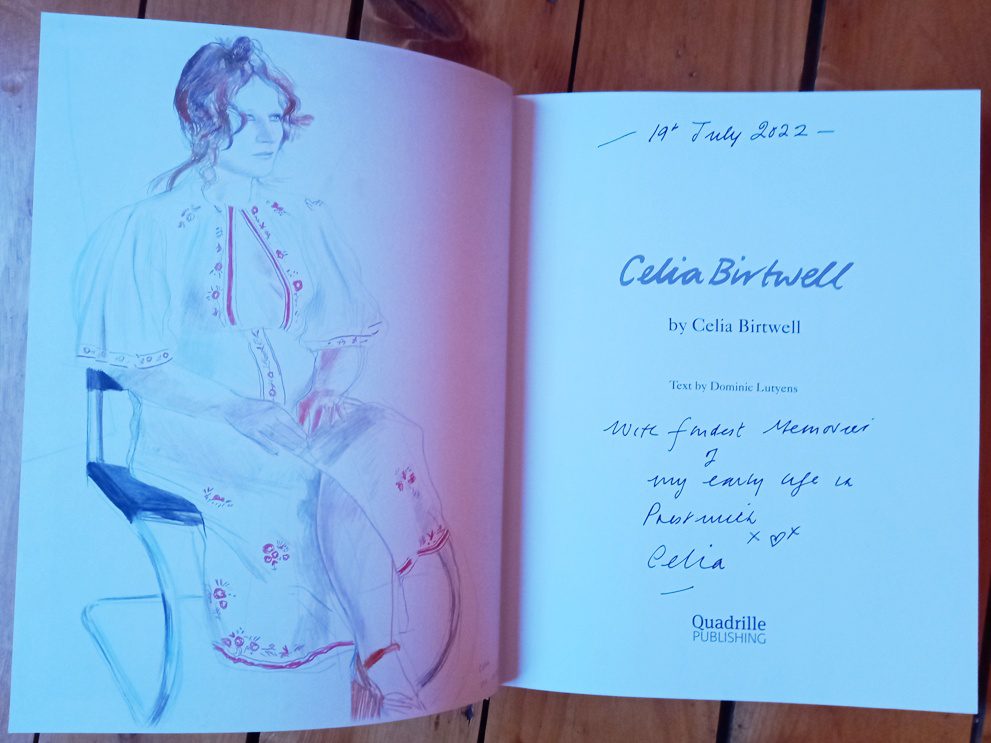 — 19th July 2022 —
Celia Birtwell
by Celia Birtwell
Text by Dominic Lutyens
With fondest Memories
of
my early life in
Prestwich
x ♡ x
Celia
Quadrille
PUBLISHING